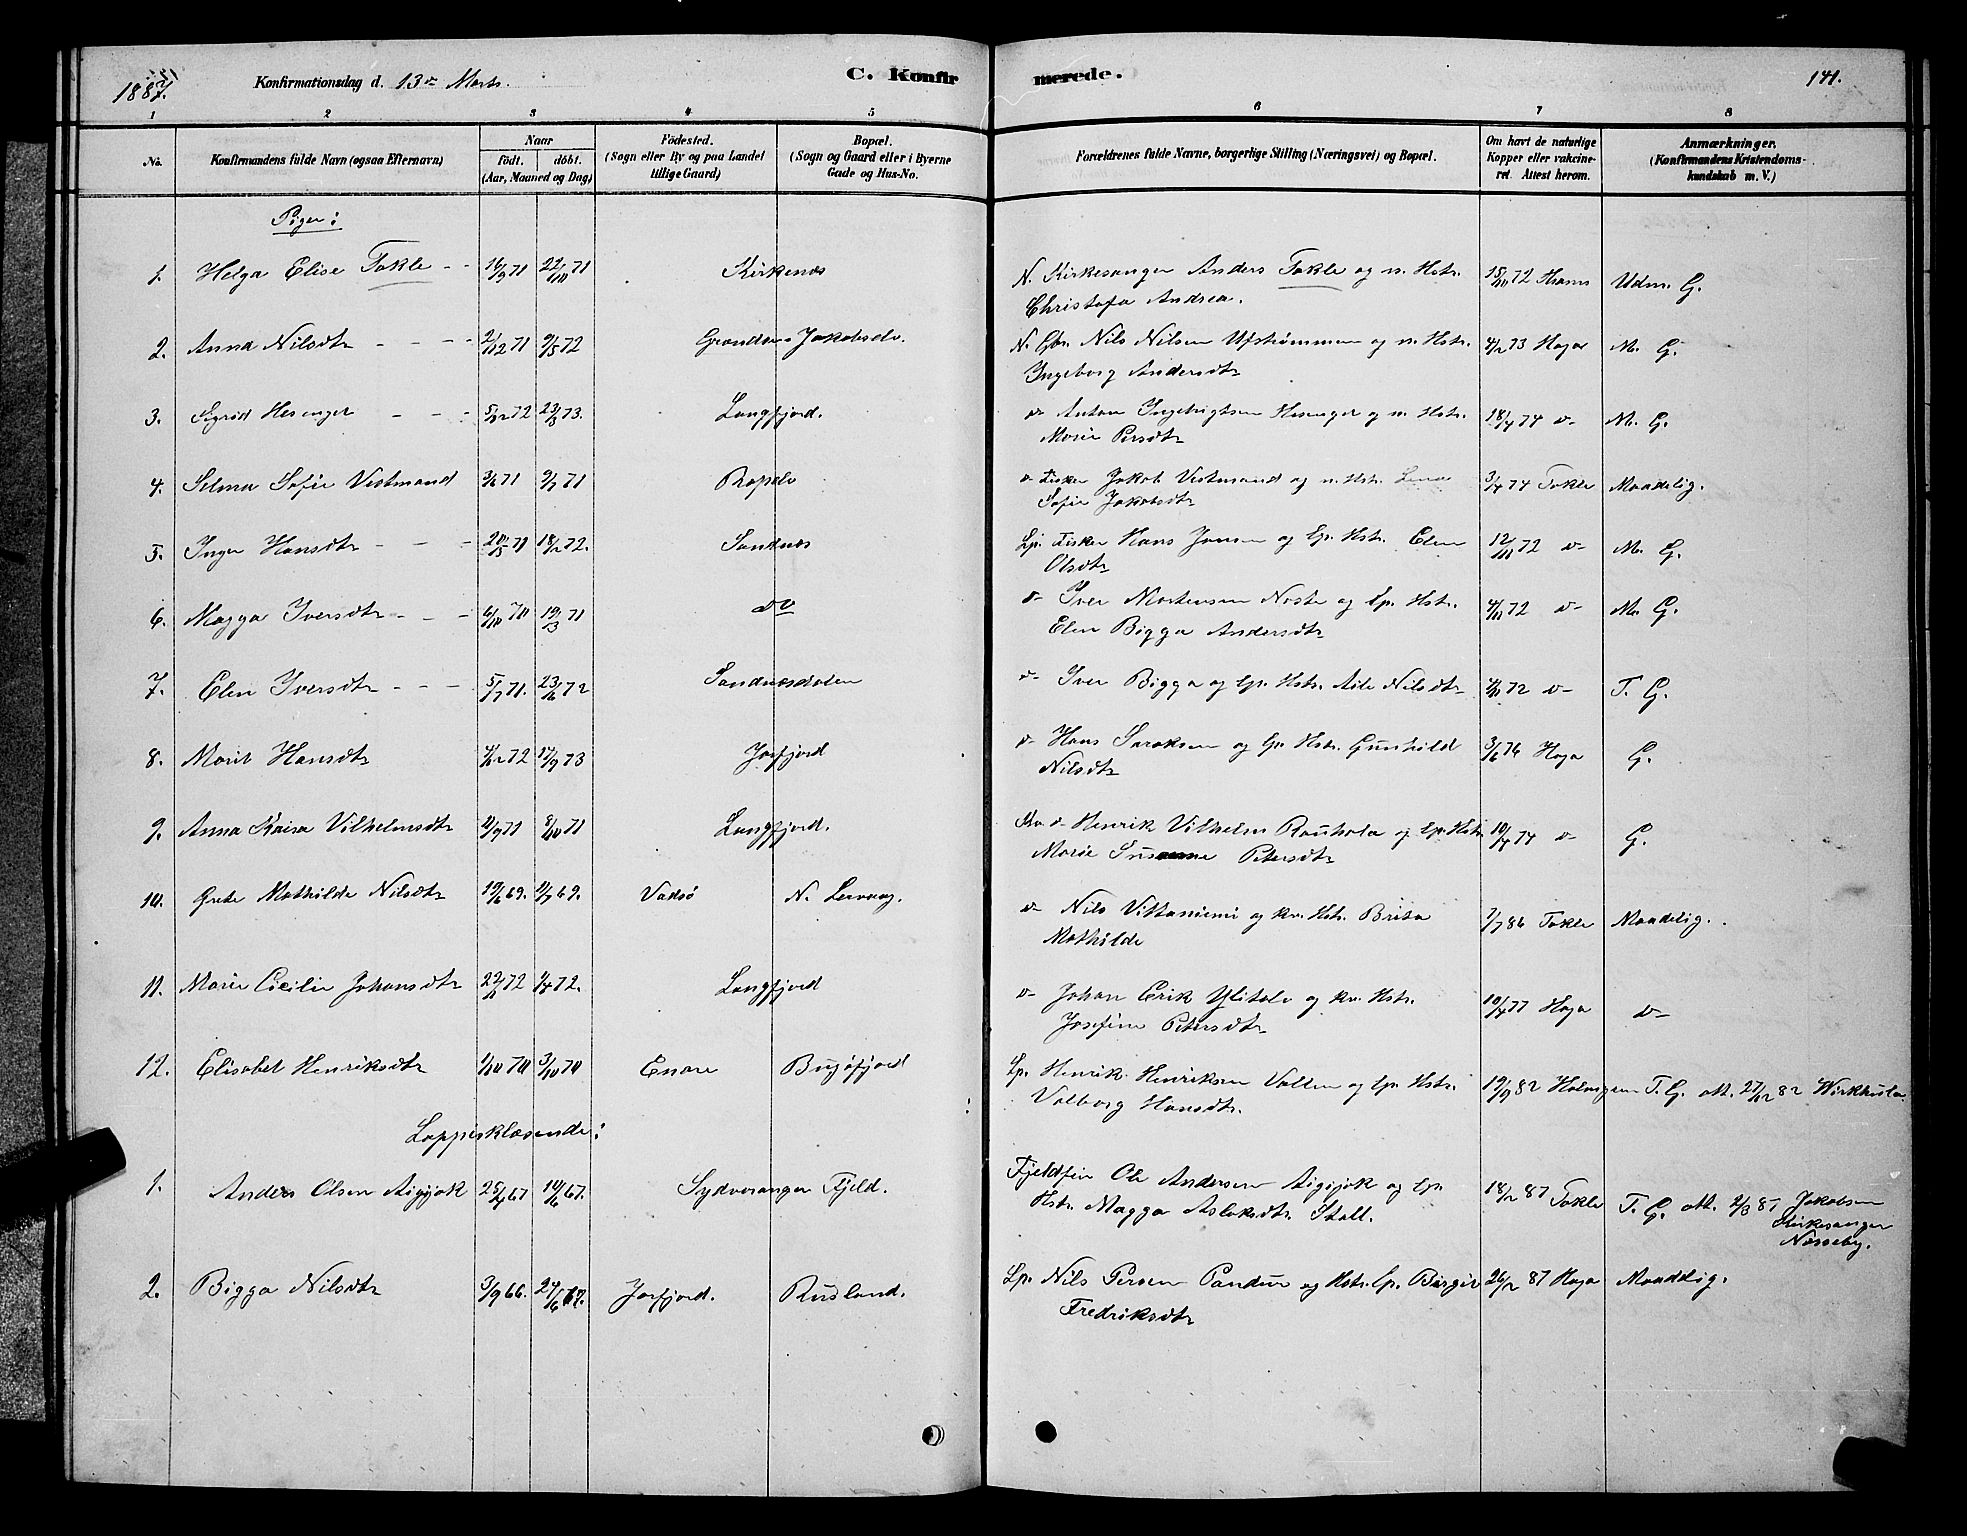 1887. Konfirmationsdag d. 13de Marts. C. Konfirmerede. 141.
1 2 3 4 5 6 7 8
No. Konfirmandens fulde Navn (ogsaa Efternavn) Naar født. døbt. (Aar, Maaned og Dag) Fødested. (Sogn eller By og paa Landet tillige Gaard) Bopæl. (Sogn og Gaard eller i Byerne Gade og Hus-No.) Forældrenes fulde Navne, borgerlige Stilling (Næringsvei) og Bopæl. Om havt de naturlige Kopper eller vakcineret. Attest herom. Anmærkninger. (Konfirmandens Kristendomskundskab m. V.)
Piger:
1. Helga Elise Takle - - 16/9 71 22/10 71 Kirkenæs N. Kirkesanger Anders Takle og n. Hstr. 15/11 72 Udm. G.
Christofa Andrea.
2. Anna Nilsdtr - - - 2/12 71 9/5 72 Jakobselv. N. Gbr. Nils Nilsen og n. Hstr. 4/2 73 Haga M. G.
Ingeborg Andersdtr
3. Sigrid Hesenger - - - 5/12 72 23/3 73. Langfjord. do Anton Ingebrigtsen Hesenger og n. Hstr. 18/4 74 do M. G.
Marie Persdtr
4. Selma Sofie Vestmand 3/6 71 9/7 71 do Fisker Jakob Vestmand og n. Hstr. Lena 3/4 74 Takle Maadelig.
Sofie Jakobsdtr
5. Inger Hansdtr - - - 20/5 71 18/2 72. Sandnæs Lp. Fisker Hans Jansen og lp. Hstr. Elen 12/11 72 do M. G.
Olsdtr
6. Magga Iversdtr - - - 6/10 70 19/3 71 do do Iver Mortensen Noste og lp. Hstr. 4/11 72 do M. G.
Elen Bigga Andersdtr
7. Elen Iversdtr - - - 5/7 71. 23/6 72 Sandnæsdalen do Iver Bigga og lp. Hstr. Aile Nilsdtr 72 do T. G.
8. Marit Hansdtr 4/12 72 17/9 73 Jarfjord do Hans Saraksen og lp. Hstr. Gunhild 3/6 76 Haga G.
Nilsdtr
9. Anna Kaisa Vilhelmsdtr 11/9 71 8/10 71 Langfjord. Kv. do Henrik Vilhelm Rauhala og lp. Hstr. 10/4 74 do G.
Marie Susanne Petersdtr
10. Grete Mathilde Nilsdtr 19/6 69. 11/7 69. Vadsø N. Leervaag. do Nils Vittaniemi og kv. Hstr. Brita 7/7 86 Takle Maadelig.
Mathilde
11. Marie Cecilie Johansdtr 22/1 72 1/4 72. Langfjord do Johan Erik Ylitalo og kv. Hstr. 10/4 77 Haga do
Josefine Petersdtr
12. Elisabet Henriksdtr 1/10 70 3/10 70 Enare Bugøfjord Lp. Henrik Henriksen Vallen og lp. Hstr. 19/9 82 Holmgren T. G. att. 27/12 82
Valborg Hansdtr.
Lappisklæsende:
1. Anders Olsen Aigijok 25/4 67 10/6 67. Sydvaranger Fjeld. Fjeldfin Ole Andersen Aigijok og lp. 18/2 87 Takle T. G. att. 2/3 87 Jakobsen
Hstr. Magga Aslaksdtr. Stall. Kirkesanger
Næsseby.
2. Bigga Nilsdtr 3/9 66. 24/6 67. Jarfjord. Rusland. Lp. Nils Persen og Hstr. lp. Birgit 26/2 87 Haga Maadelig.
Fredriksdtr